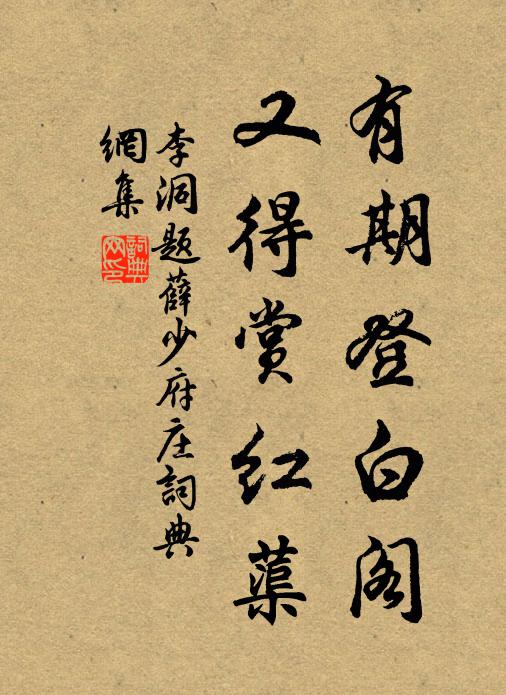 有期登白阁
又得赏红蕖
李洞题薛少府庄詞典
網集
詞典网印